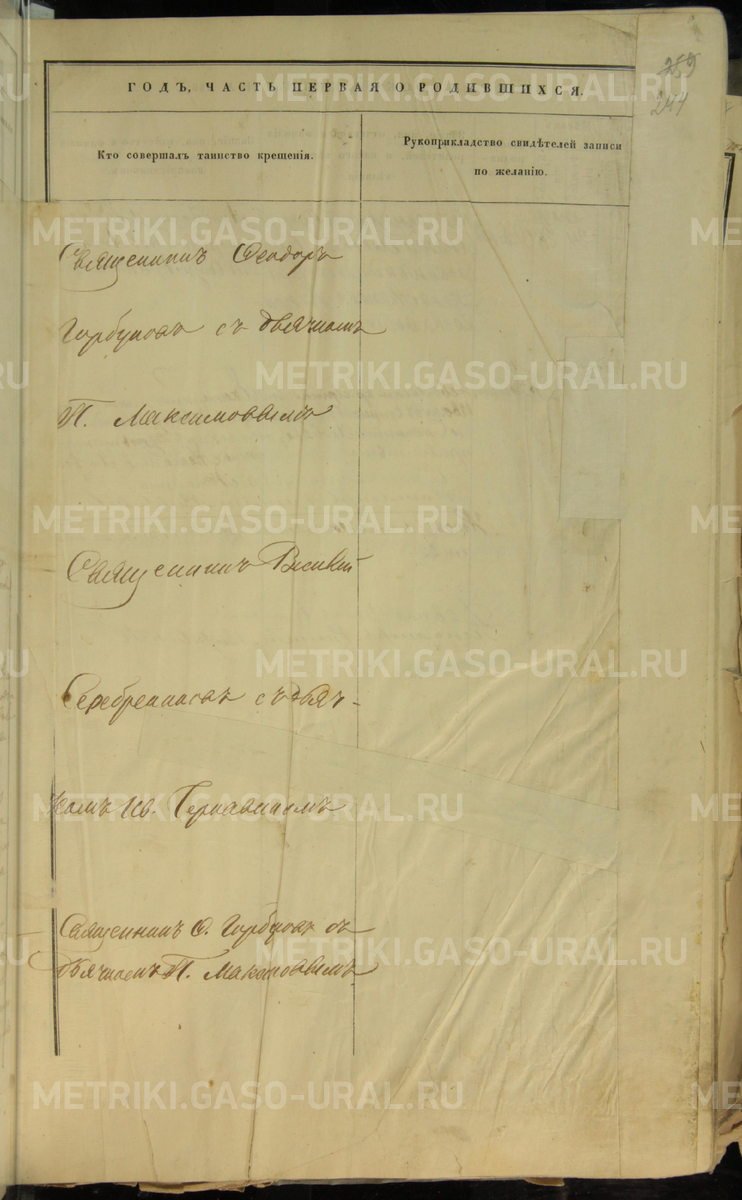 259
244
ГОДЪ, ЧАСТЬ ПЕРВАЯ О РОДИВШИХСЯ.
Кто совершалъ таинство крещенія.
Рукоприкладство свидѣтелей записи
по желанію.
METRIKI.GASO-URAL.RU
Священникъ Ѳеодоръ
Горбуновъ съ дьячкомъ
П. Максимовымъ
Священникъ Василій
Серебренниковъ съ дьяч-
комъ Ив.
Священникъ Ѳ. Горбуновъ съ
дьячкомъ П. Максимовымъ